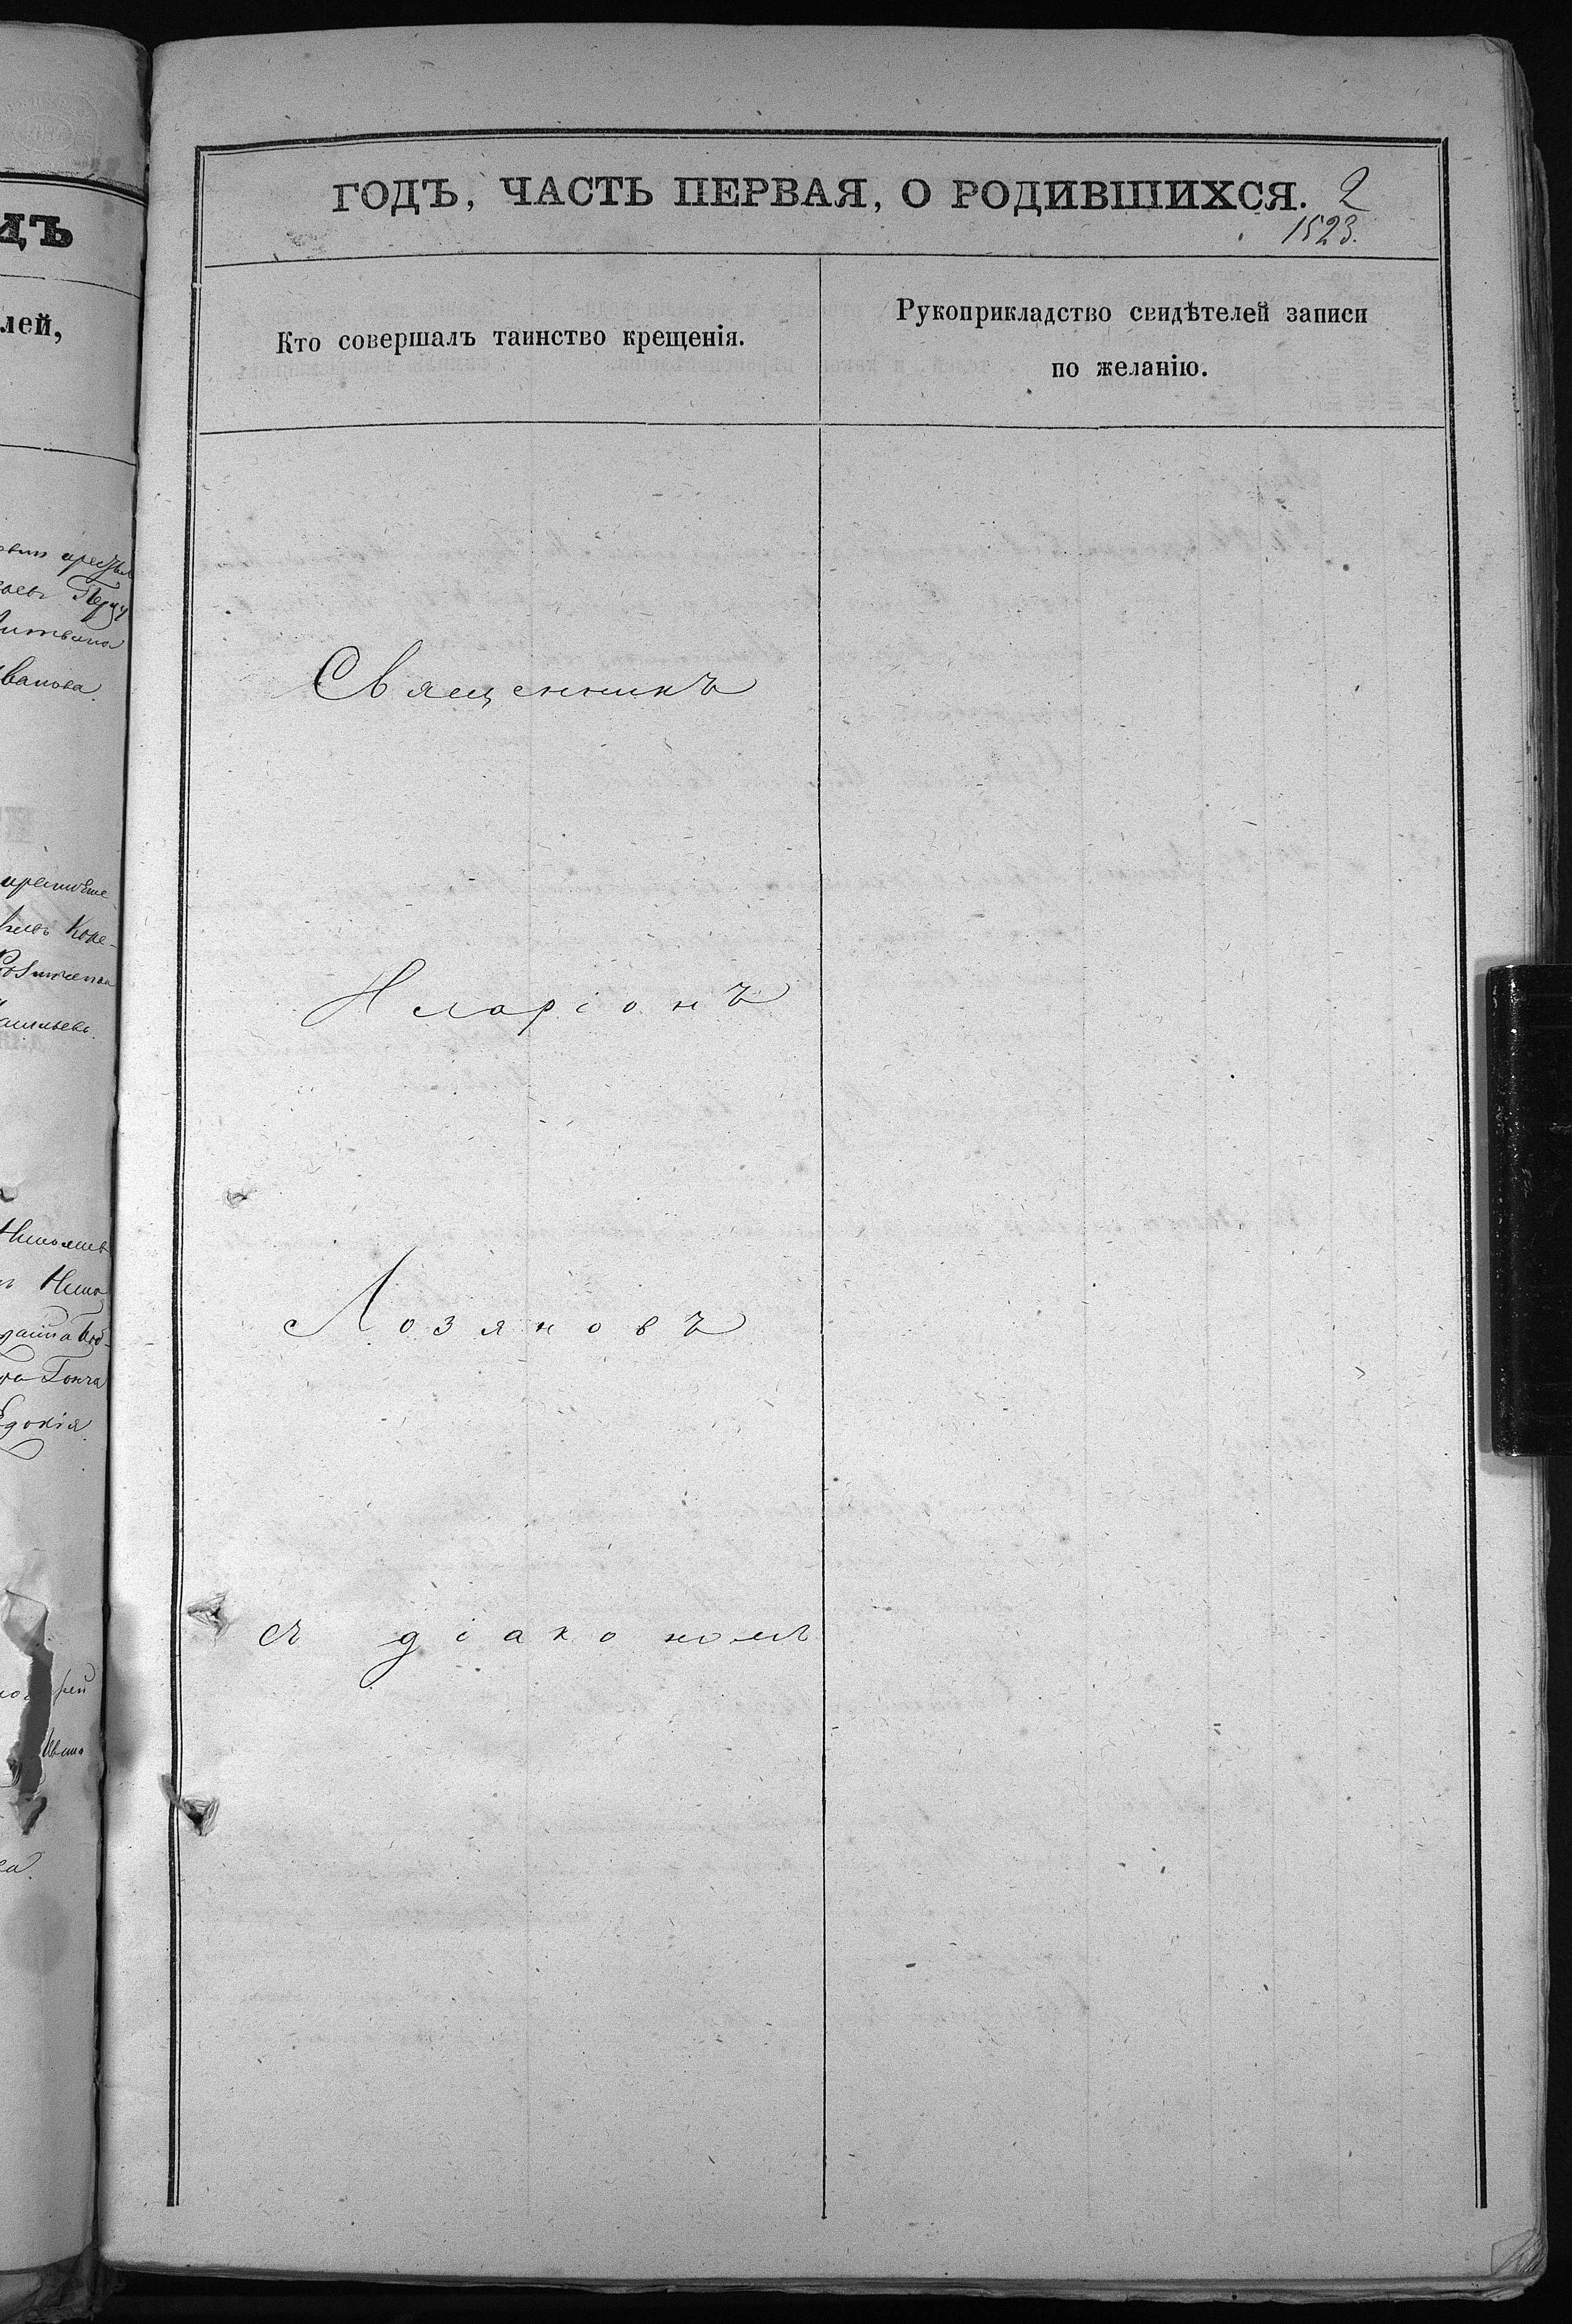 ИЦЪ
лей,
Иванова.
Коне-
Гонча
Едокія.
ГОДЪ, ЧАСТЬ ПЕРВАЯ, О РОДИВШИХСЯ.
2
1523.
Кто совершалъ таинство крещенія.
Рукоприкладство свидѣтелей записи
по желанію.
Священникъ
Иларіонъ
Лозяновъ
съ діакономъ